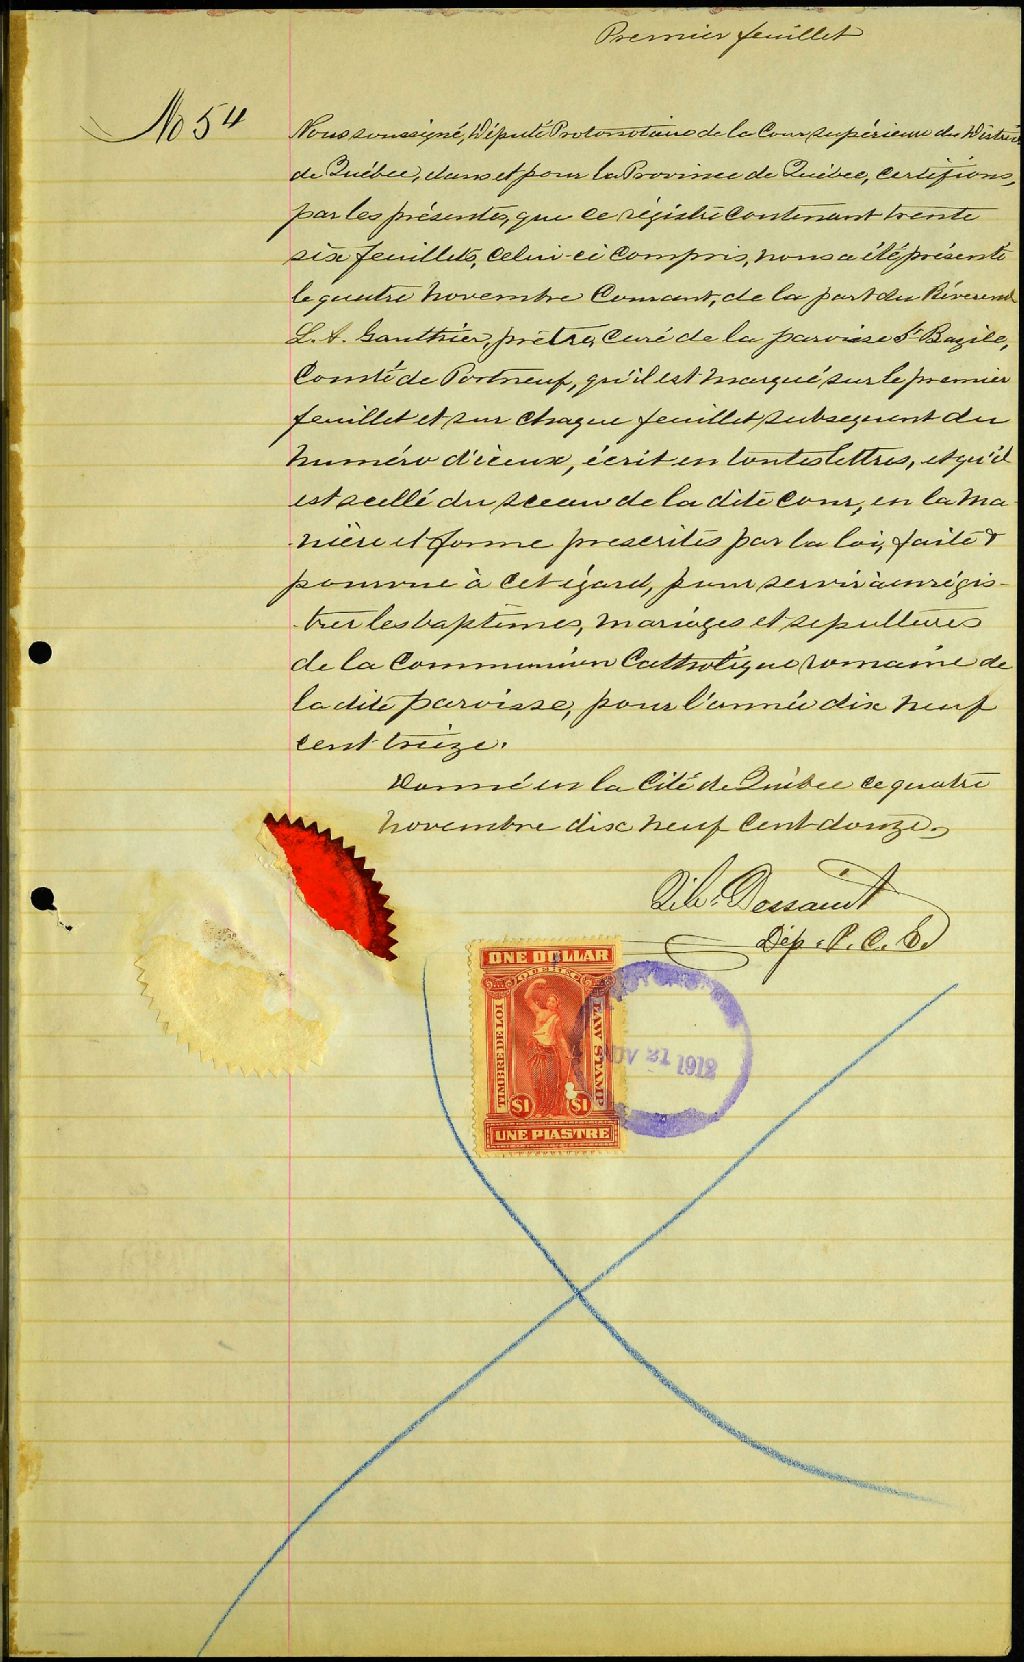 Premier feuillet
No 54
Nous soussigné, Député Protonotaire de la Cour supérieure du District
de Québec, dans et pour la Province de Québec, certifions,
par les présentes, que ce régistre contenant trente
six feuillets, celui-ci compris, nous a été présenté
le quatre novembre courant, de la part du Révérend
L. A. Gauthier, prêtre, curé de la paroisse St Bazile,
Comté de Portneuf, qu'il est marqué sur le premier
feuillet et sur chaque feuillet subsequent du
numéro d'iceux, écrit en toutes lettres, et qu'il
est scellé du sceau de la dite cour, en la ma-
-nière et forme prescrites par la loi, faite &
pourvue à cet égard, pour servir à enrégis-
-trer les baptêmes, mariages et sepultures
de la Communion Catholique romaine de
la dite paroisse, pour l'année dix neuf
cent treize.
Donné en la Cité de Québec ce quatre
novembre dix neuf cent douze.
Dessault
Dép. P. C. S.
ONE DOLLAR
QUEBEC
TIMBRE DE LOI
LAW STAMP
$1 $1
UNE PIASTRE
NOV 21 1912